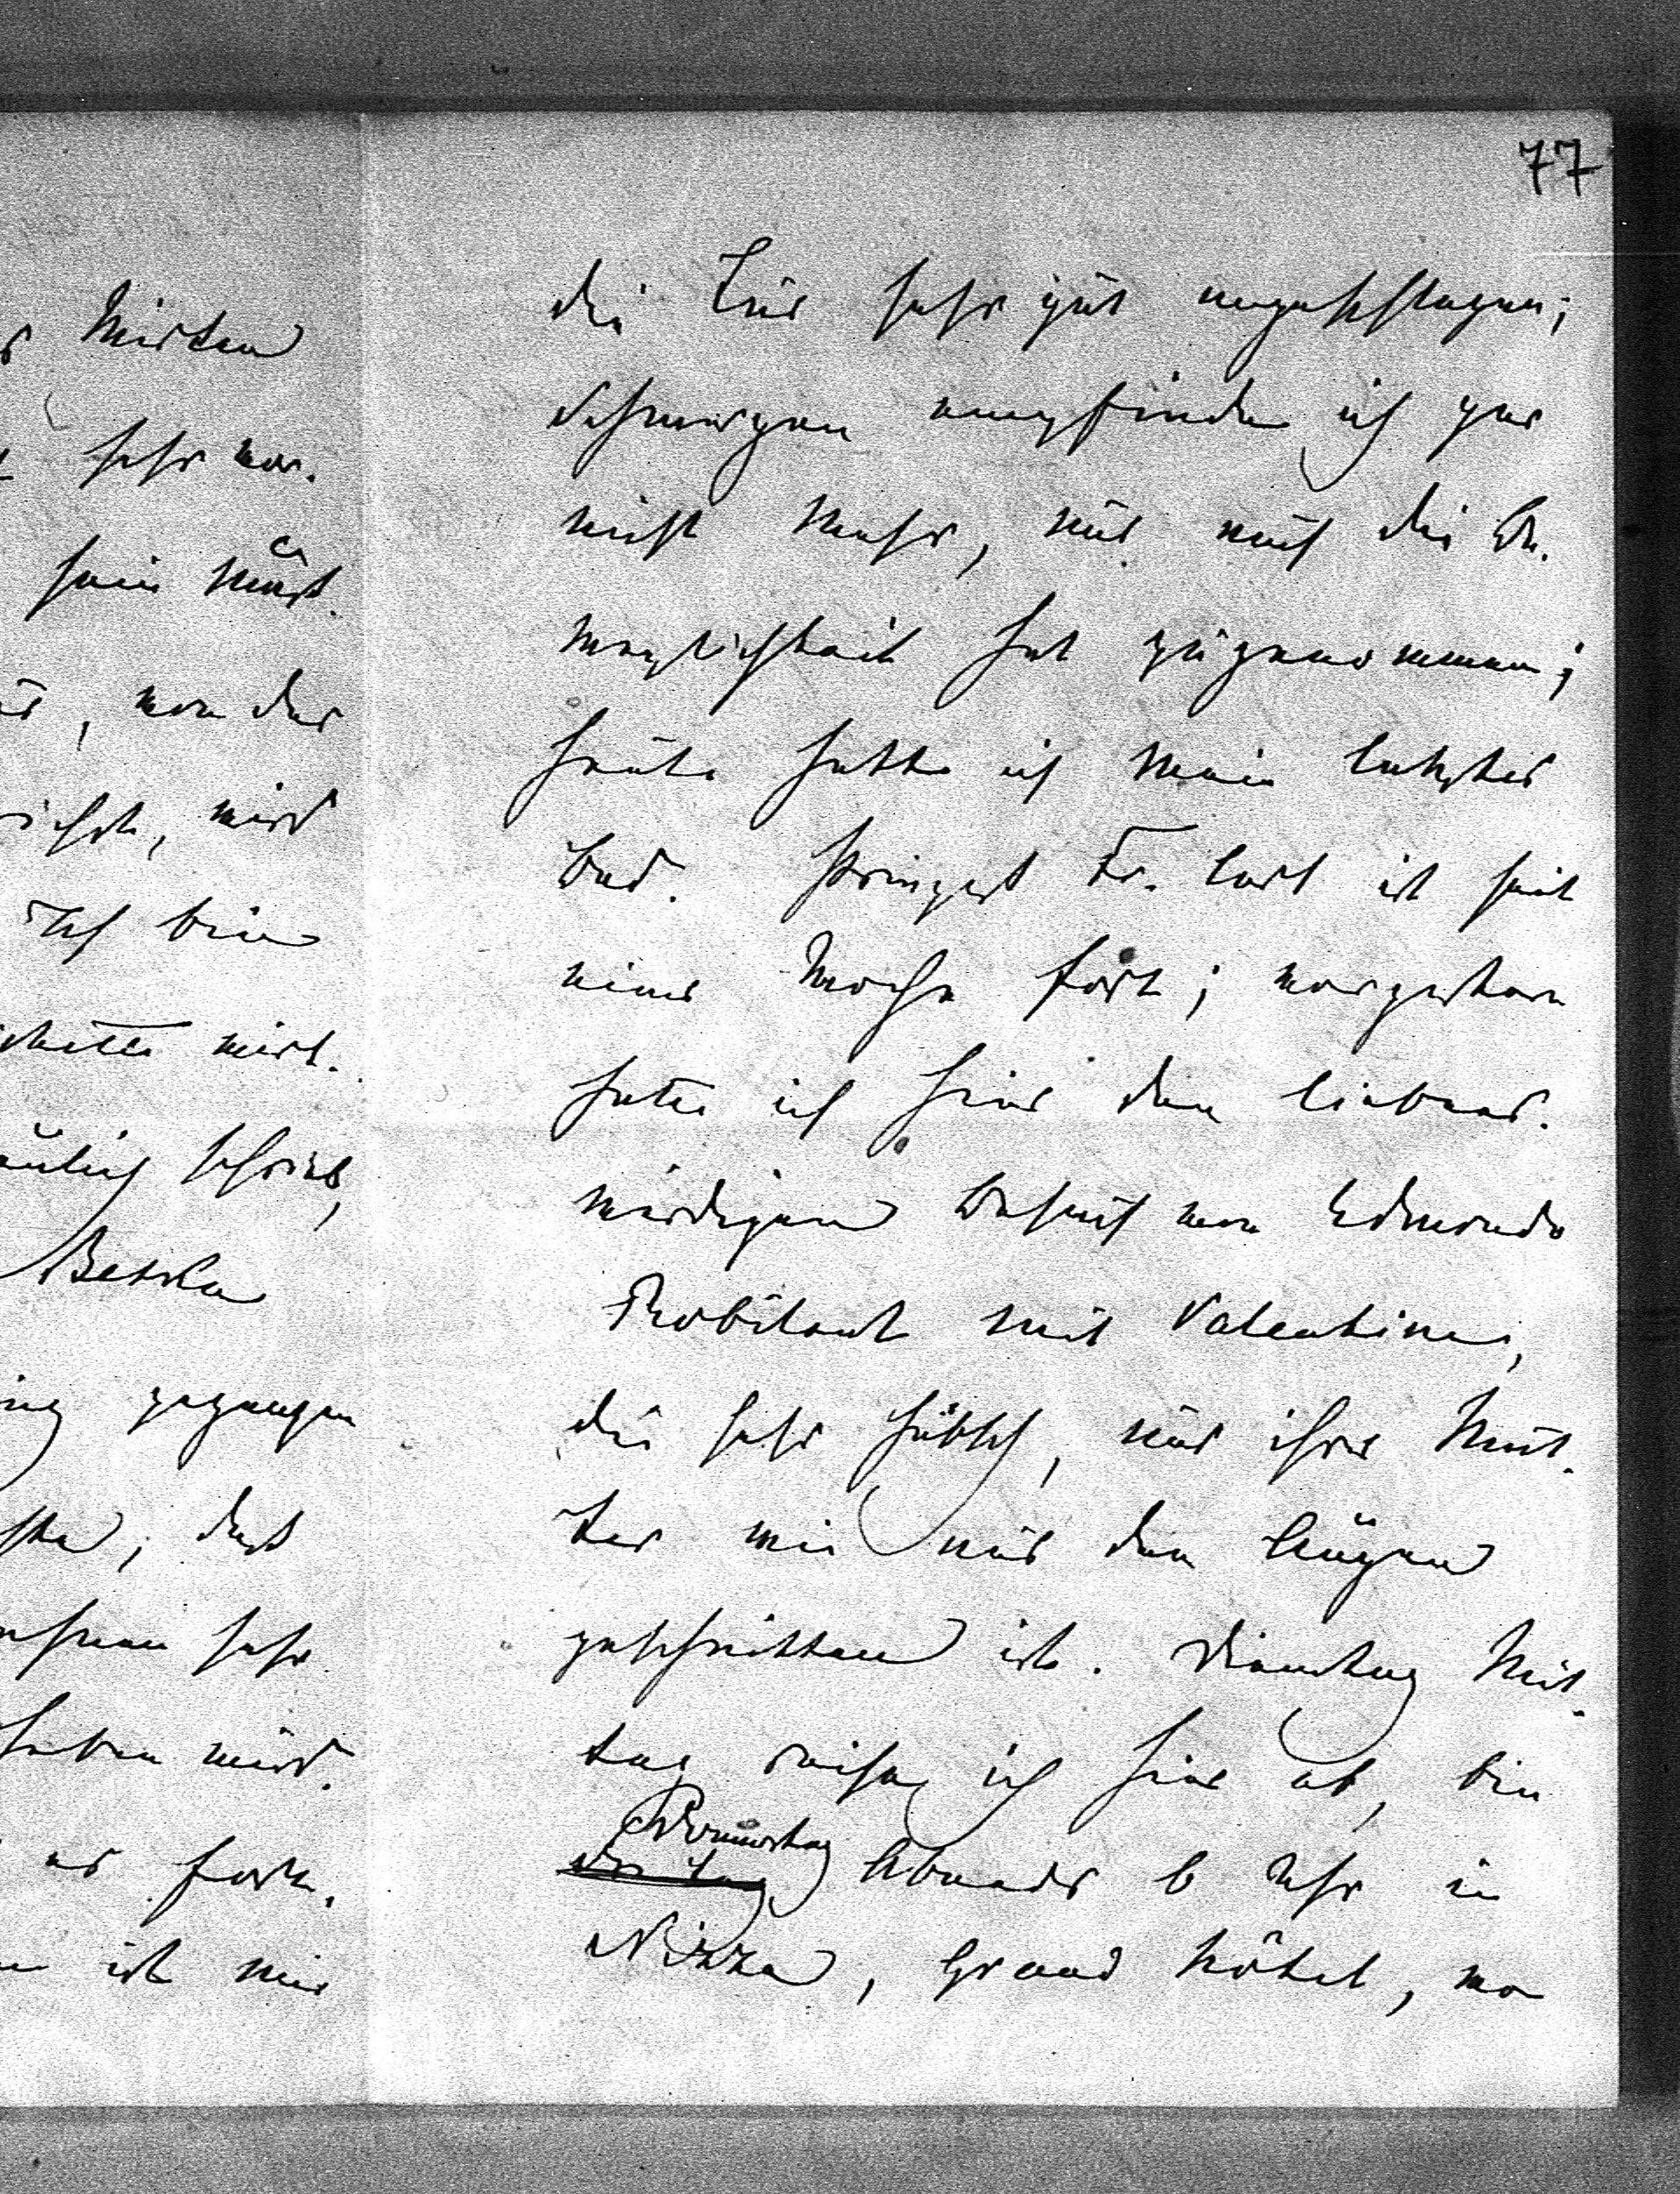 77
die Cur sehr gut angeschlagen;
Schmerzen empfinde ich gar
nicht mehr, und auch die Be-
weglichkeit hat zugenommen;
heute hatte ich mein letztes
Bad. Prinzess Fr. Carl ist seit
einer Woche fort; vorgestern
hatte ich hier den liebens-
würdigen Besuch von Edmondo
Robilant mit Valentine,
die sehr hübsch, und ihrer Mut-
ter wie aus den Augen
geschnitten ist. Dienstag Mit-
tag reise ich hier ab, bin
Donnerstag Abends 6 Uhr in
Nizza, Grand Hôtel, wo
sehr ver-
, von der
wird
Ich bin
schrieb,
gegangen
, dass
sehr
haben wird.
er fort,
ist mir